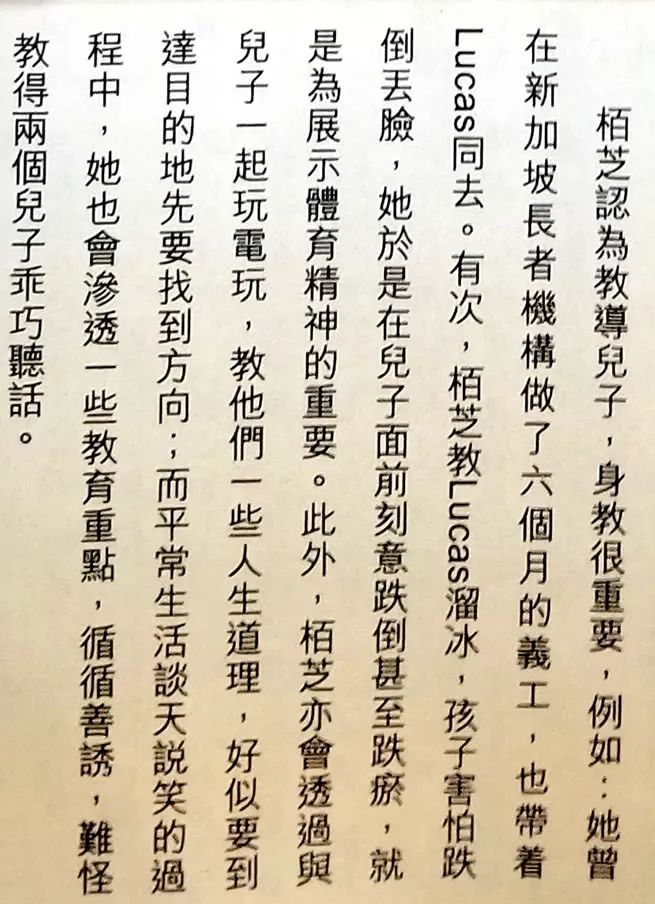 栢芝認為教導兒子，身教很重要，例如：她曾
在新加坡長者機構做了六個月的義工，也帶着
Lucas同去。有次，栢芝教Lucas溜冰，孩子害怕跌
倒丟臉，她於是在兒子面前刻意跌倒甚至跌瘀，就
是為展示體育精神的重要。此外，栢芝亦會透過與
兒子一起玩電玩，教他們一些人生道理，好似要到
達目的地先要找到方向；而平常生活談天說笑的過
程中，她也會滲透一些教育重點，循循善誘，難怪
教得兩個兒子乖巧聽話。